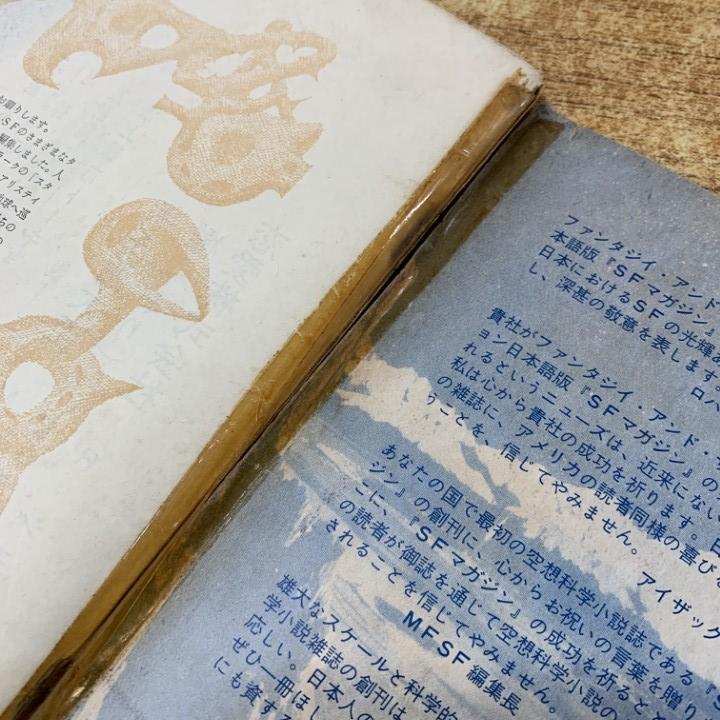 お贈りします。
SFのさまざまなタ
編集しました。人
ークの「スタ
アリステイ
地球へ巡
ちの
ファンタジイ・アンド・
本語版『SFマガジン』
日本におけるSFの光輝
し、深甚の敬意を表します
ロバ
貴社がファンタジイ・アンド・
ョン日本語版『SFマガジン』の
れるというニュースは、近来にない
私は心から貴社の成功を祈ります。日
の雑誌に、アメリカの読者同様の喜び
うことを、信じてやみません。 アイザック
あなたの国で最初の空想科学小説誌である『
ジン』の創刊に、心からお祝いの言葉を贈り
こに、『SFマガジン』の成功を祈ると
の読者が御誌を通じて空想科学小説の
されることを信じてやみません。
MFSF 編集長
雄大なスケールと科学的
学小説雑誌の創刊は
応しい。日本人の
ぜひ一冊ほし
にも資する